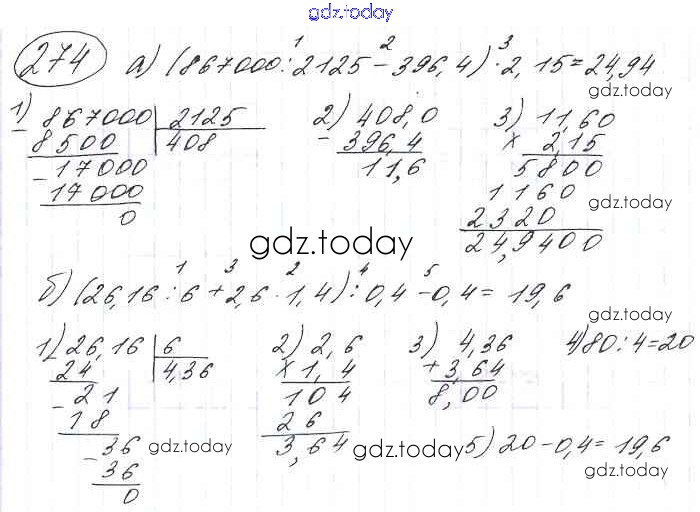 gdz.today
274 а) (867000:2125-396,4)·2,15=24,94
1 2 3
gdz.today
1) 867000 | 2125
- 8500 | 408
- 17000
17000
0
2) 408,0
- 396,4
11,6
3) 11,60
× 2,15
5800
1160
2320
24,9400
gdz.today
gdz.today
б) (26,16:6+2,6·1,4):0,4-0,4=19,6
1 3 2 4 5
gdz.today
1) 26,16 | 6
24 | 4,36
- 21
18
- 36
36
0
2) 2,6
× 1,4
104
26
3,64
3) 4,36
+ 3,64
8,00
4) 80:4=20
gdz.today
gdz.today
5) 20-0,4=19,6
gdz.today